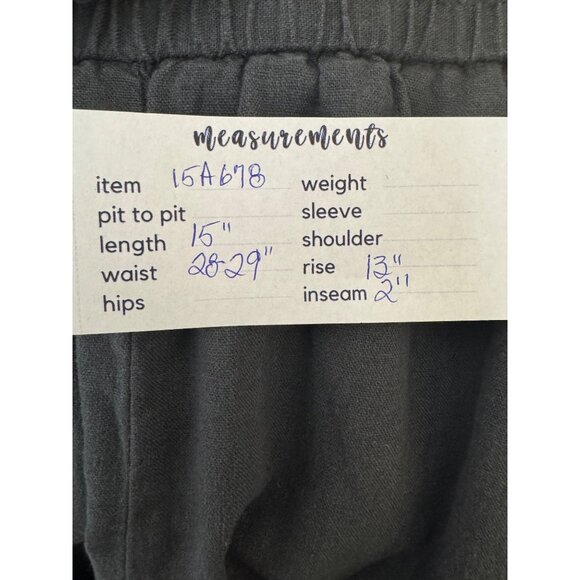 measurements
item 15A678
pit to pit
length 15"
waist 28-29"
hips
weight
sleeve
shoulder
rise 13"
inseam 2"